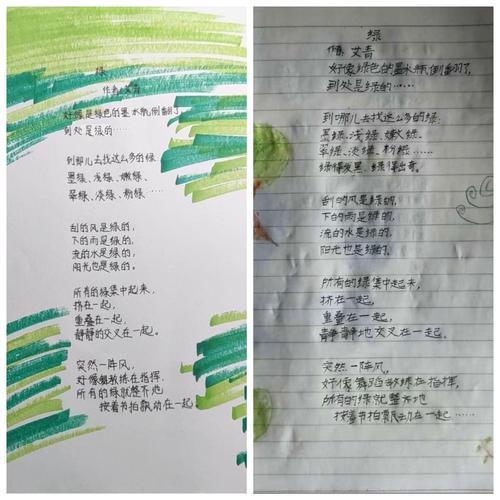 绿
作者 艾青
好像是绿色的墨水瓶倒翻了
到处是绿的……
到哪儿去找这么多的绿
墨绿、浅绿、嫩绿
翠绿、淡绿、粉绿……
刮的风是绿的，
下的雨是绿的，
流的水是绿的，
阳光也是绿的。
所有的绿集中起来，
挤在一起，
重叠在一起，
静静的交叉在一起。
突然一阵风，
好像教练在指挥，
所有的绿就整齐地
按着节拍飘动在一起
绿
艾青
好像绿色的墨水瓶倒翻了，
到处是绿的……
到哪儿去找这么多的绿：
墨绿、浅绿、嫩绿、
翠绿、淡绿、粉绿……
绿得发黑、绿得出奇。
刮的风是绿的，
下的雨是绿的，
流的水是绿的，
阳光也是绿的。
所有的绿集中起来，
挤在一起，
重叠在一起，
静静地交叉在一起。
突然一阵风，
好像舞蹈教练在指挥，
所有的绿就整齐地
按着节拍飘动在一起……